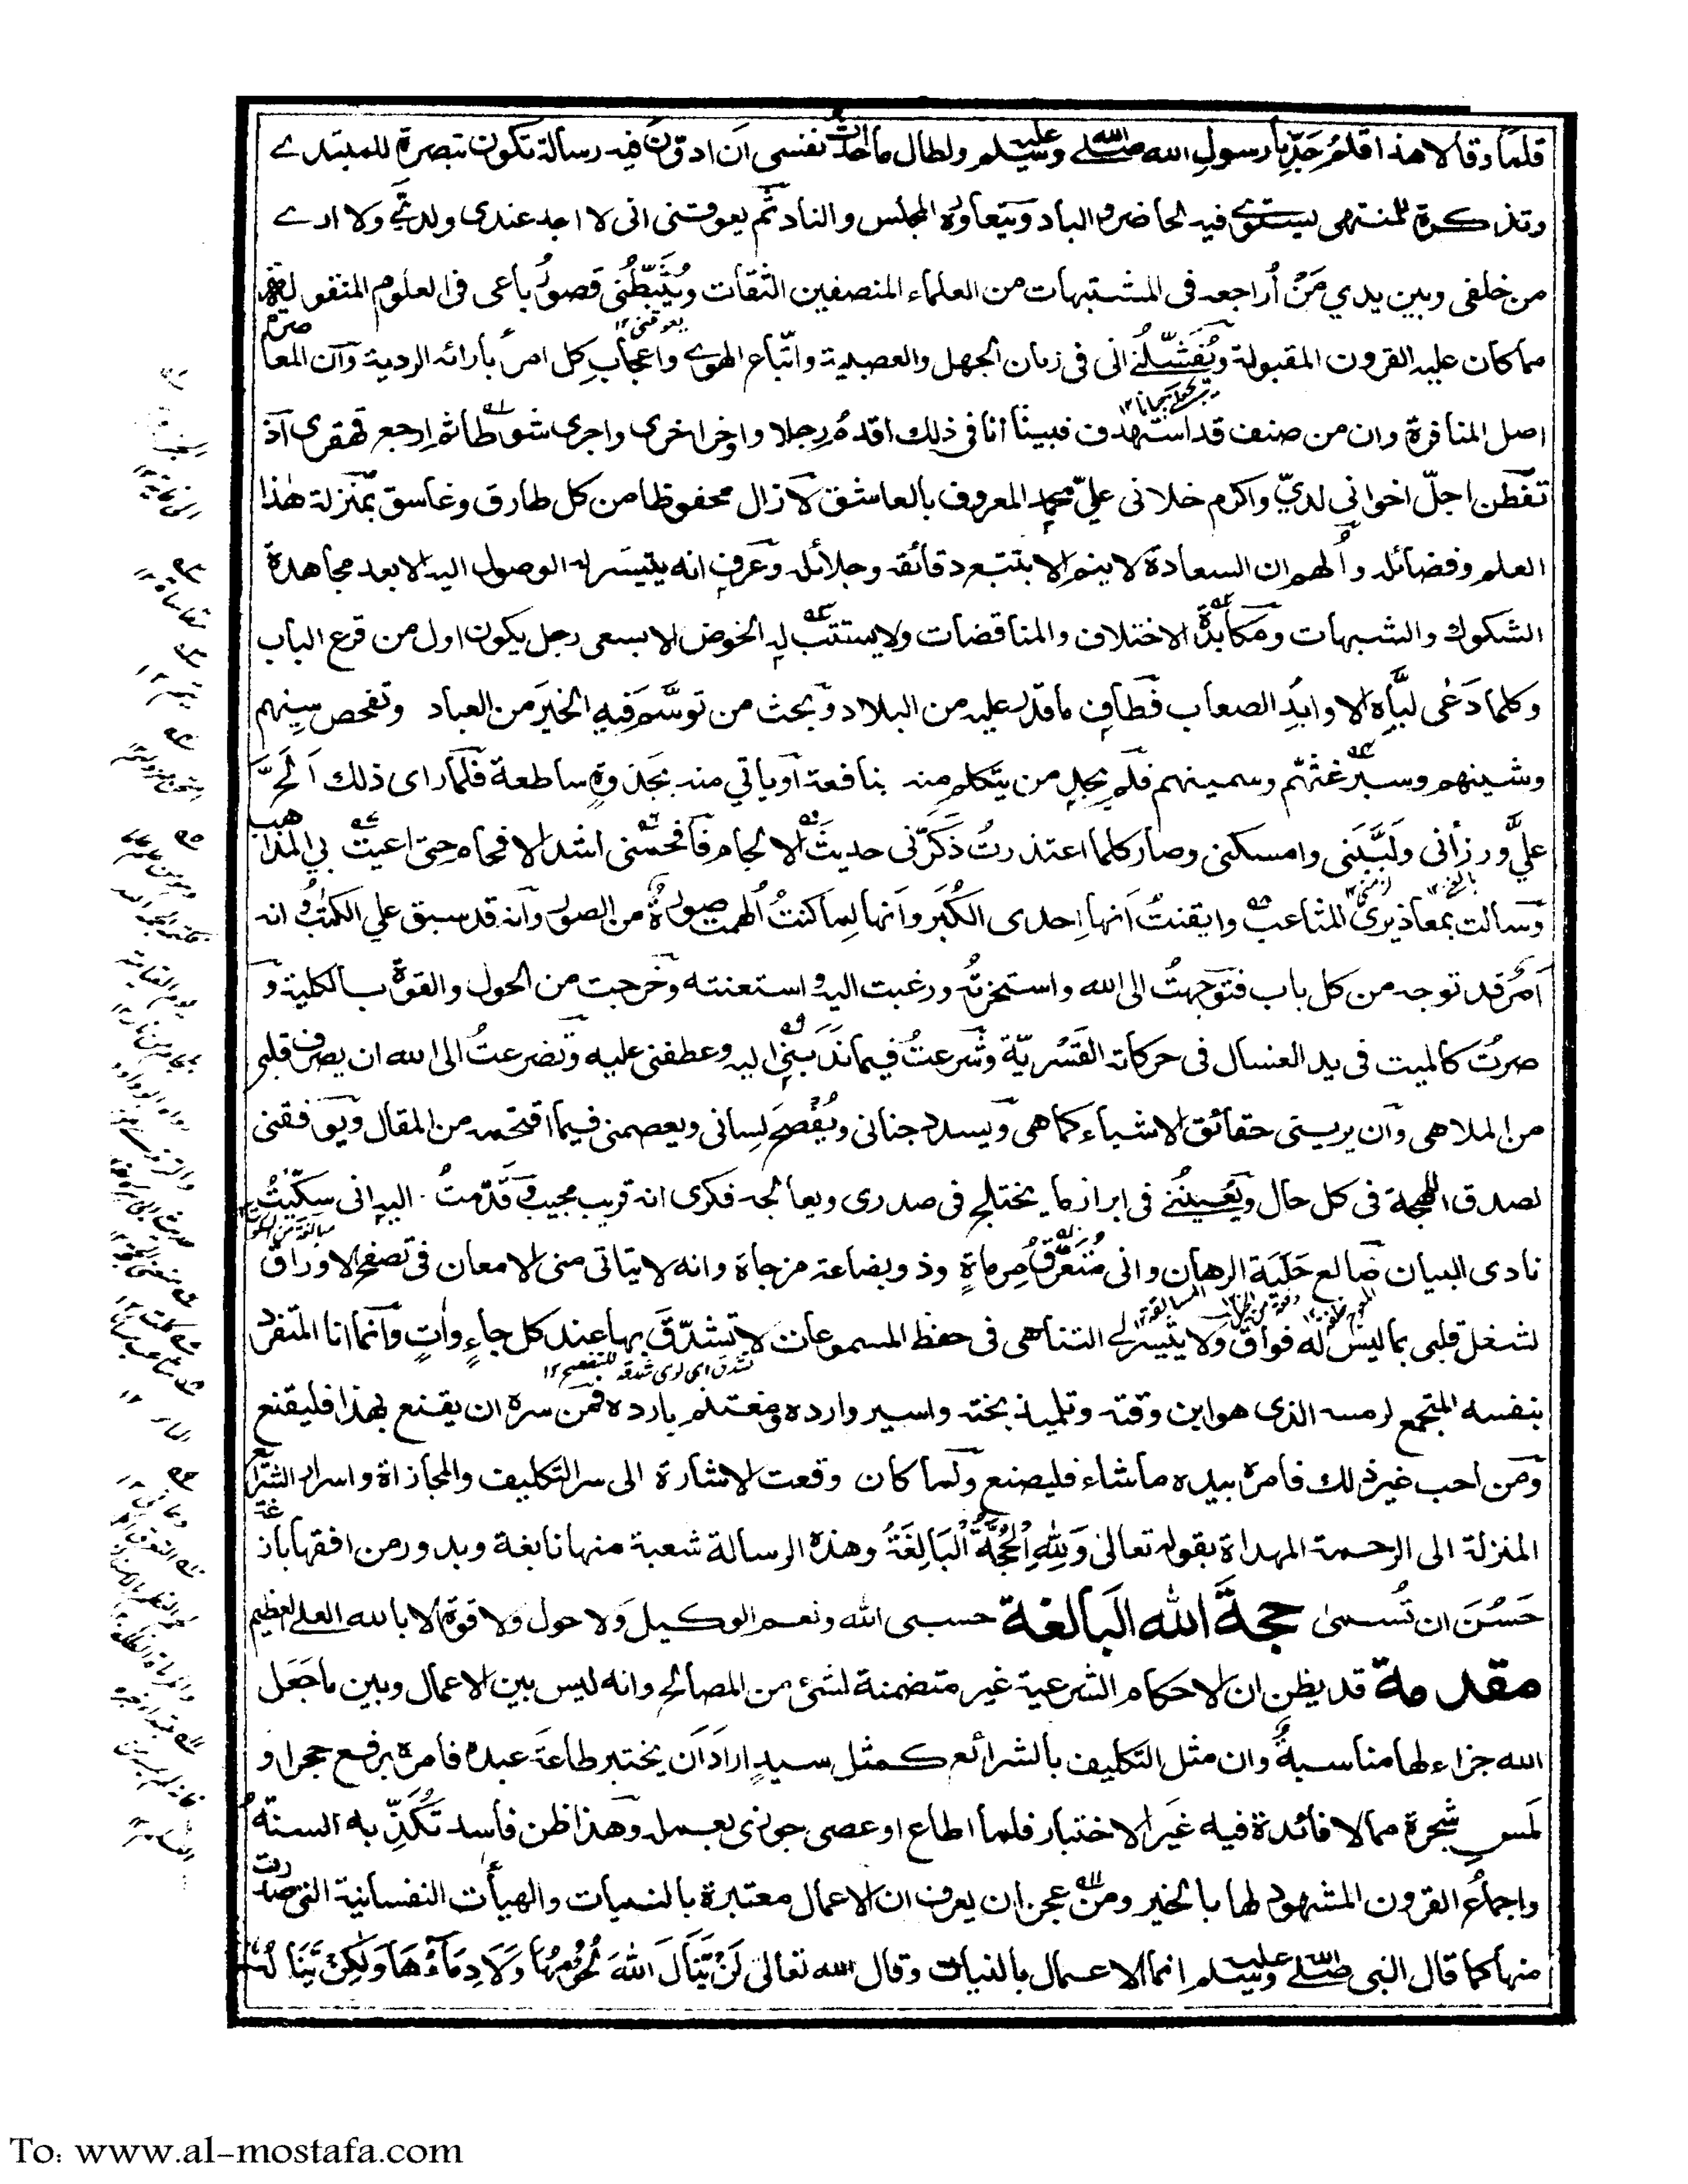 قلما وقالا هذا قلم جدنا رسول الله صلى الله عليه وسلم ولطال ما احدث نفسى ان ادون فيه رسالة تكون تبصرة للمبتدى
وتذكرة للمنتهى يستوى فيه الحاضر والباد ويتعاوره المجلس والناد ثم يعوقنى انى لا اجد عندى ولدى ولا ارى
من خلفى وبين يدي من أراجعه فى المشتبهات من العلماء المنصفين الثقات ويثبطنى قصور باعى فى العلوم المنقولة
مما كان عليه القرون المقبولة ويفشلنى انى فى زمان الجهل والعصبية واتباع الهوى واعجاب كل امرأ بأرائه الردية وان المعاصرة
اصل المنافرة وان من صنف قد استهدف فبينا انا فى ذلك اقدم رجلا واوخر اخرى واجرى شوطا ثم ارجع قهقرى اذ
تفطن اجل اخوانى لدي واكرم خلانى علي محمد المعروف بالعاشق لا زال محفوظا من كل طارق وغاسق بمنزلة هذا
العلم وفضائله وألهم ان السعادة لا يتم الا بتتبع دقائقه وجلائله وعرف انه يتيسر له الوصول اليه الا بعد مجاهدة
الشكوك والشبهات ومكابدة الاختلاف والمناقضات ولا يستتب له الخوض الا بسعى رجل يكون اول من قرع الباب
وكلما دعى لباه الاوابد الصعاب فطاف ما قدر عليه من البلاد وبحث من توسم فيه الخير من العباد وتفحص سينهم
وشينهم وسبر غثهم وسمينهم فلم يجد من يتكلم منه بنافعة او ياتي منه بجذوة ساطعة فلما راى ذلك الح
علي ورزأنى ولببنى وامسكنى وصار كلما اعتذرت ذكرنى حديث الالجام فافحمنى اشد الافحام حتى اعيت بي المذاهب
وسالت بمعاذيرى المثاعب وايقنت انها احدى الكبر وانها لما كنت ألهمت صورة من الصور وانه قد سبق علي الكتب وانه
امر قد توجه من كل باب فتوجهت الى الله واستخرته ورغبت اليه واستعنته وخرجت من الحول والقوة بالكلية و
صرت كالميت فى يد الغسال فى حركاته القسرية وشرعت فيما ندبنى اليه وعطفنى عليه وتضرعت الى الله ان يصرف قلبى
من الملاهى وان يرينى حقائق الاشياء كما هى ويسدد جنانى ويفصح لسانى ويعصمنى فيما اقتحمه من المقال ويوفقنى
لصدق اللهجة فى كل حال ويعيننى فى ابراز ما يختلج فى صدرى ويعالجه فكرى انه قريب مجيب وقدمت اليه انى سكيت
نادى البيان ضالع حلبة الرهان وانى متعرق مرماة وذو بضاعة مزجاة وانه لا يتاتى منى الامعان فى تصفح الاوراق
لشغل قلبى بما ليس له فواق ولا يتيسر لى التناهى فى حفظ المسموعات لاتشدق بها عند كل جاء وات وانما انا المتفرد
بنفسه المجتمع لرمسه الذى هو ابن وقته وتلميذ بخته واسير وارده ومغتنم بارده فمن سره ان يقنع بهذا فليقنع
ومن احب غير ذلك فامره بيده ما شاء فليصنع ولما كان وقعت الاشارة الى سر التكليف والمجازاة واسرار الشرائع
المنزلة الى الرحمة المهداة بقوله تعالى وَلِلّٰهِ الْحُجَّةُ الْبَالِغَةُ وهذه الرسالة شعبة منها نابغة وبدور من افقها بازغة
حسن ان تسمى حجة الله البالغة حسبى الله ونعم الوكيل ولا حول ولا قوة الا بالله العلى العظيم
مقدمة قد يظن ان الاحكام الشرعية غير متضمنة لشئ من المصالح وانه ليس بين الاعمال وبين ما جعل
الله جزاء لها مناسبة وان مثل التكليف بالشرائع كمثل سيد اراد ان يختبر طاعة عبده فامره برفع حجر او
لمس شجرة مما لا فائدة فيه غير الاختبار فلما اطاع او عصى جوزى بعمله وهذا ظن فاسد تكذبه السنة
واجماع القرون المشهود لها بالخير ومن عجز ان يعرف ان الاعمال معتبرة بالنيات والهيأت النفسانية التى صدرت
منها كما قال النبى صلى الله عليه وسلم انما الاعمال بالنيات وقال الله تعالى لَنْ يَّنَالَ اللّٰهَ لُحُوْمُهَا وَلَا دِمَآؤُهَا وَلٰكِنْ يَّنَالُهُ
To: www.al-mostafa.com